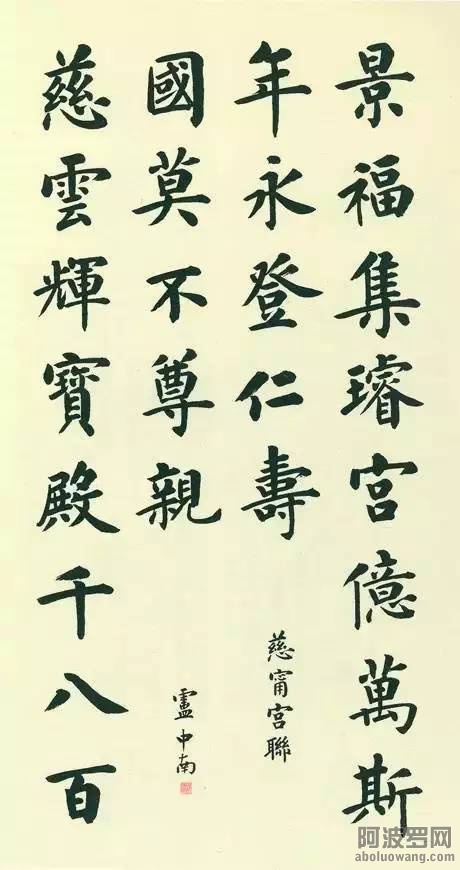 景福集璿宮億萬斯
年永登仁壽
慈甯宮聯
慈雲輝寶殿千八百
國莫不尊親
盧中南
阿波罗网
aboluowang.com